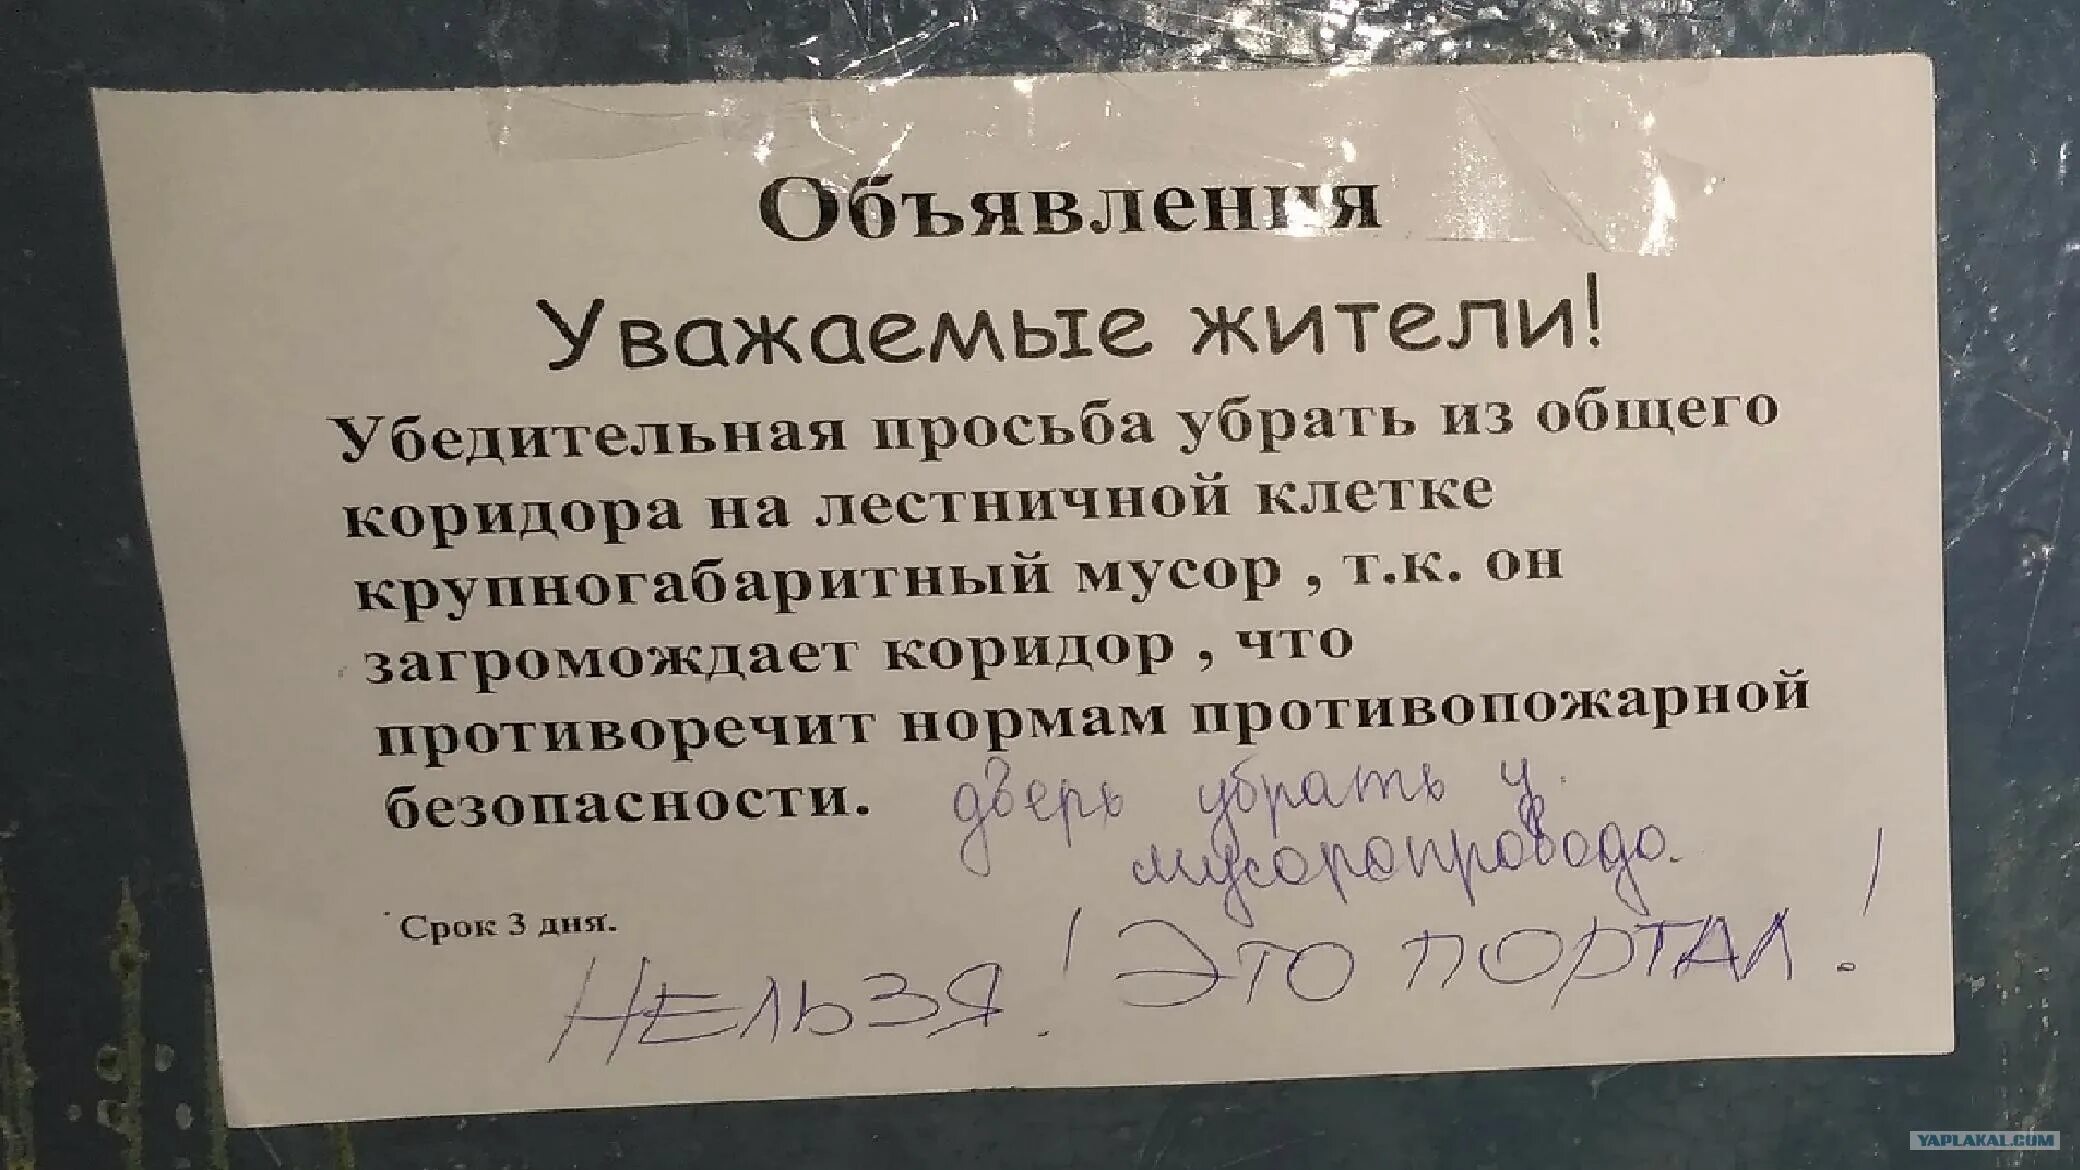 Объявления
Уважаемые жители!
Убедительная просьба убрать из общего
коридора на лестничной клетке
крупногабаритный мусор , т.к. он
загромождает коридор , что
противоречит нормам противопожарной
безопасности. дверь убрать у
мусоропровода.
Срок 3 дня.
НЕЛЬЗЯ! ЭТО ПОРТАЛ!
YAPLAKAL.COM